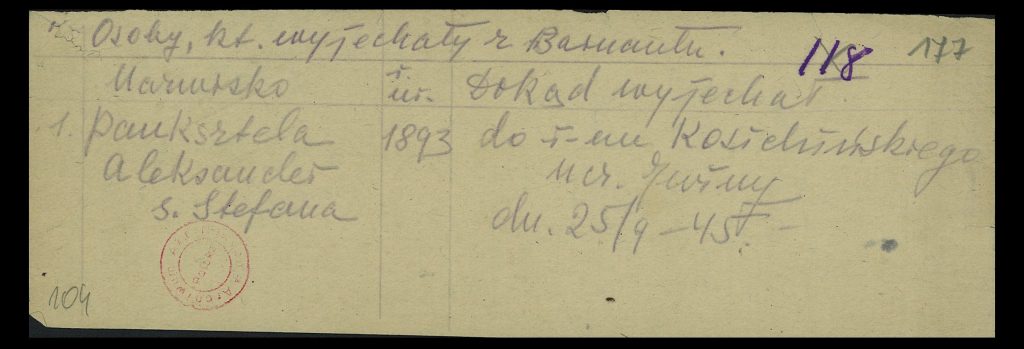 Osoby, kt. wyjechały z Barnautu.
118
177
Nazwisko
r. ur.
Dokąd wyjechał
1. Pauksztela
1893
do r-nu Kosichińskiego
Aleksander
s. Stefana
dn. 25/9 - 45 r.
104